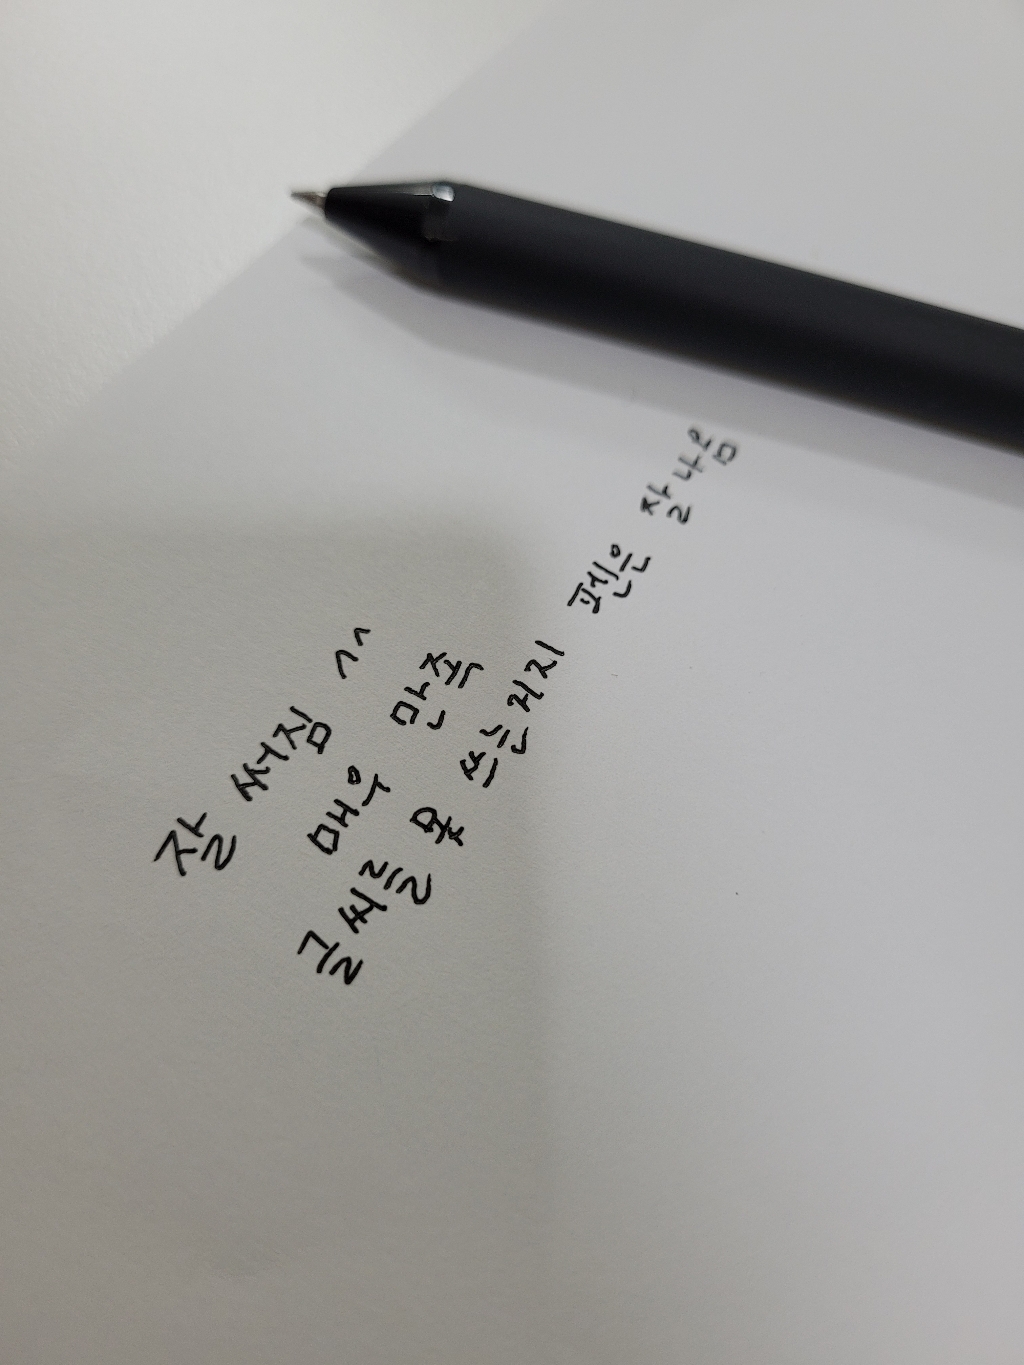 잘 써짐 ^^
매우 만족
글씨를 못 쓰는거지 펜은 잘 나옴